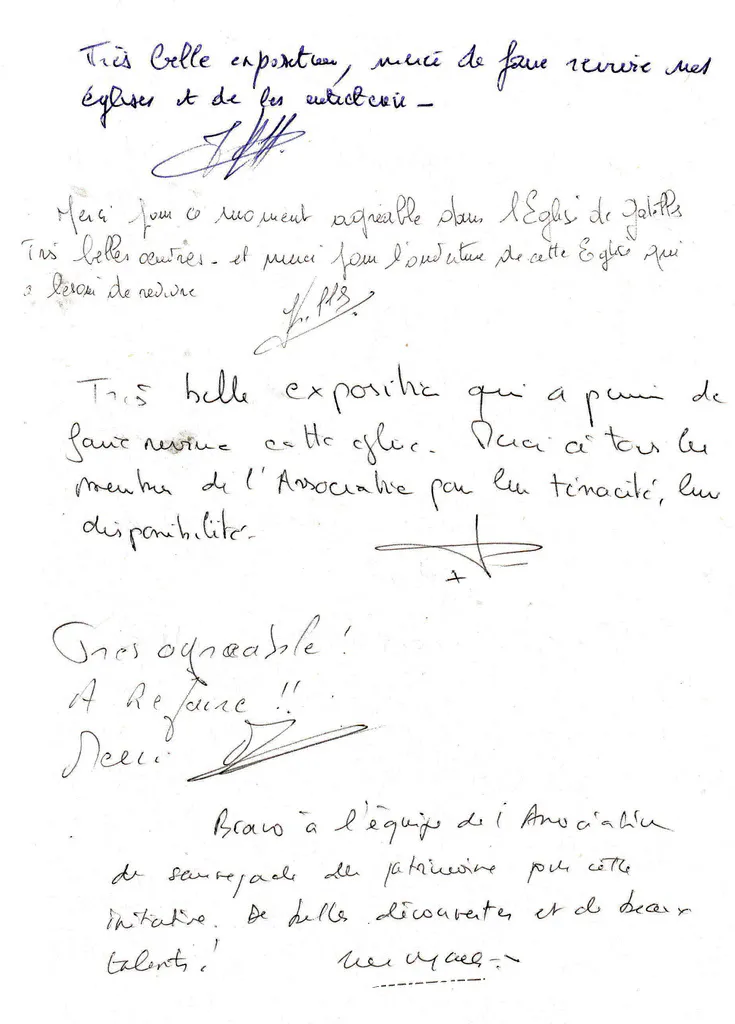 Très belle exposition, merci de faire revivre nos
églises et de les entretenir -
Merci pour ce moment agréable dans l'Église de
Très belles œuvres - et merci pour l'ouverture de cette Eglise qui
a besoin de revivre
Très belle exposition qui a permis de
faire revivre cette église. Merci à tous les
membres de l'Association pour leur ténacité, leur
disponibilité.
Très agréable !
A Refaire !!
Merci
Bravo à l'équipe de l'Association
de sauvegarde du patrimoine pour cette
initiative. De belles découvertes et de beaux
talents !